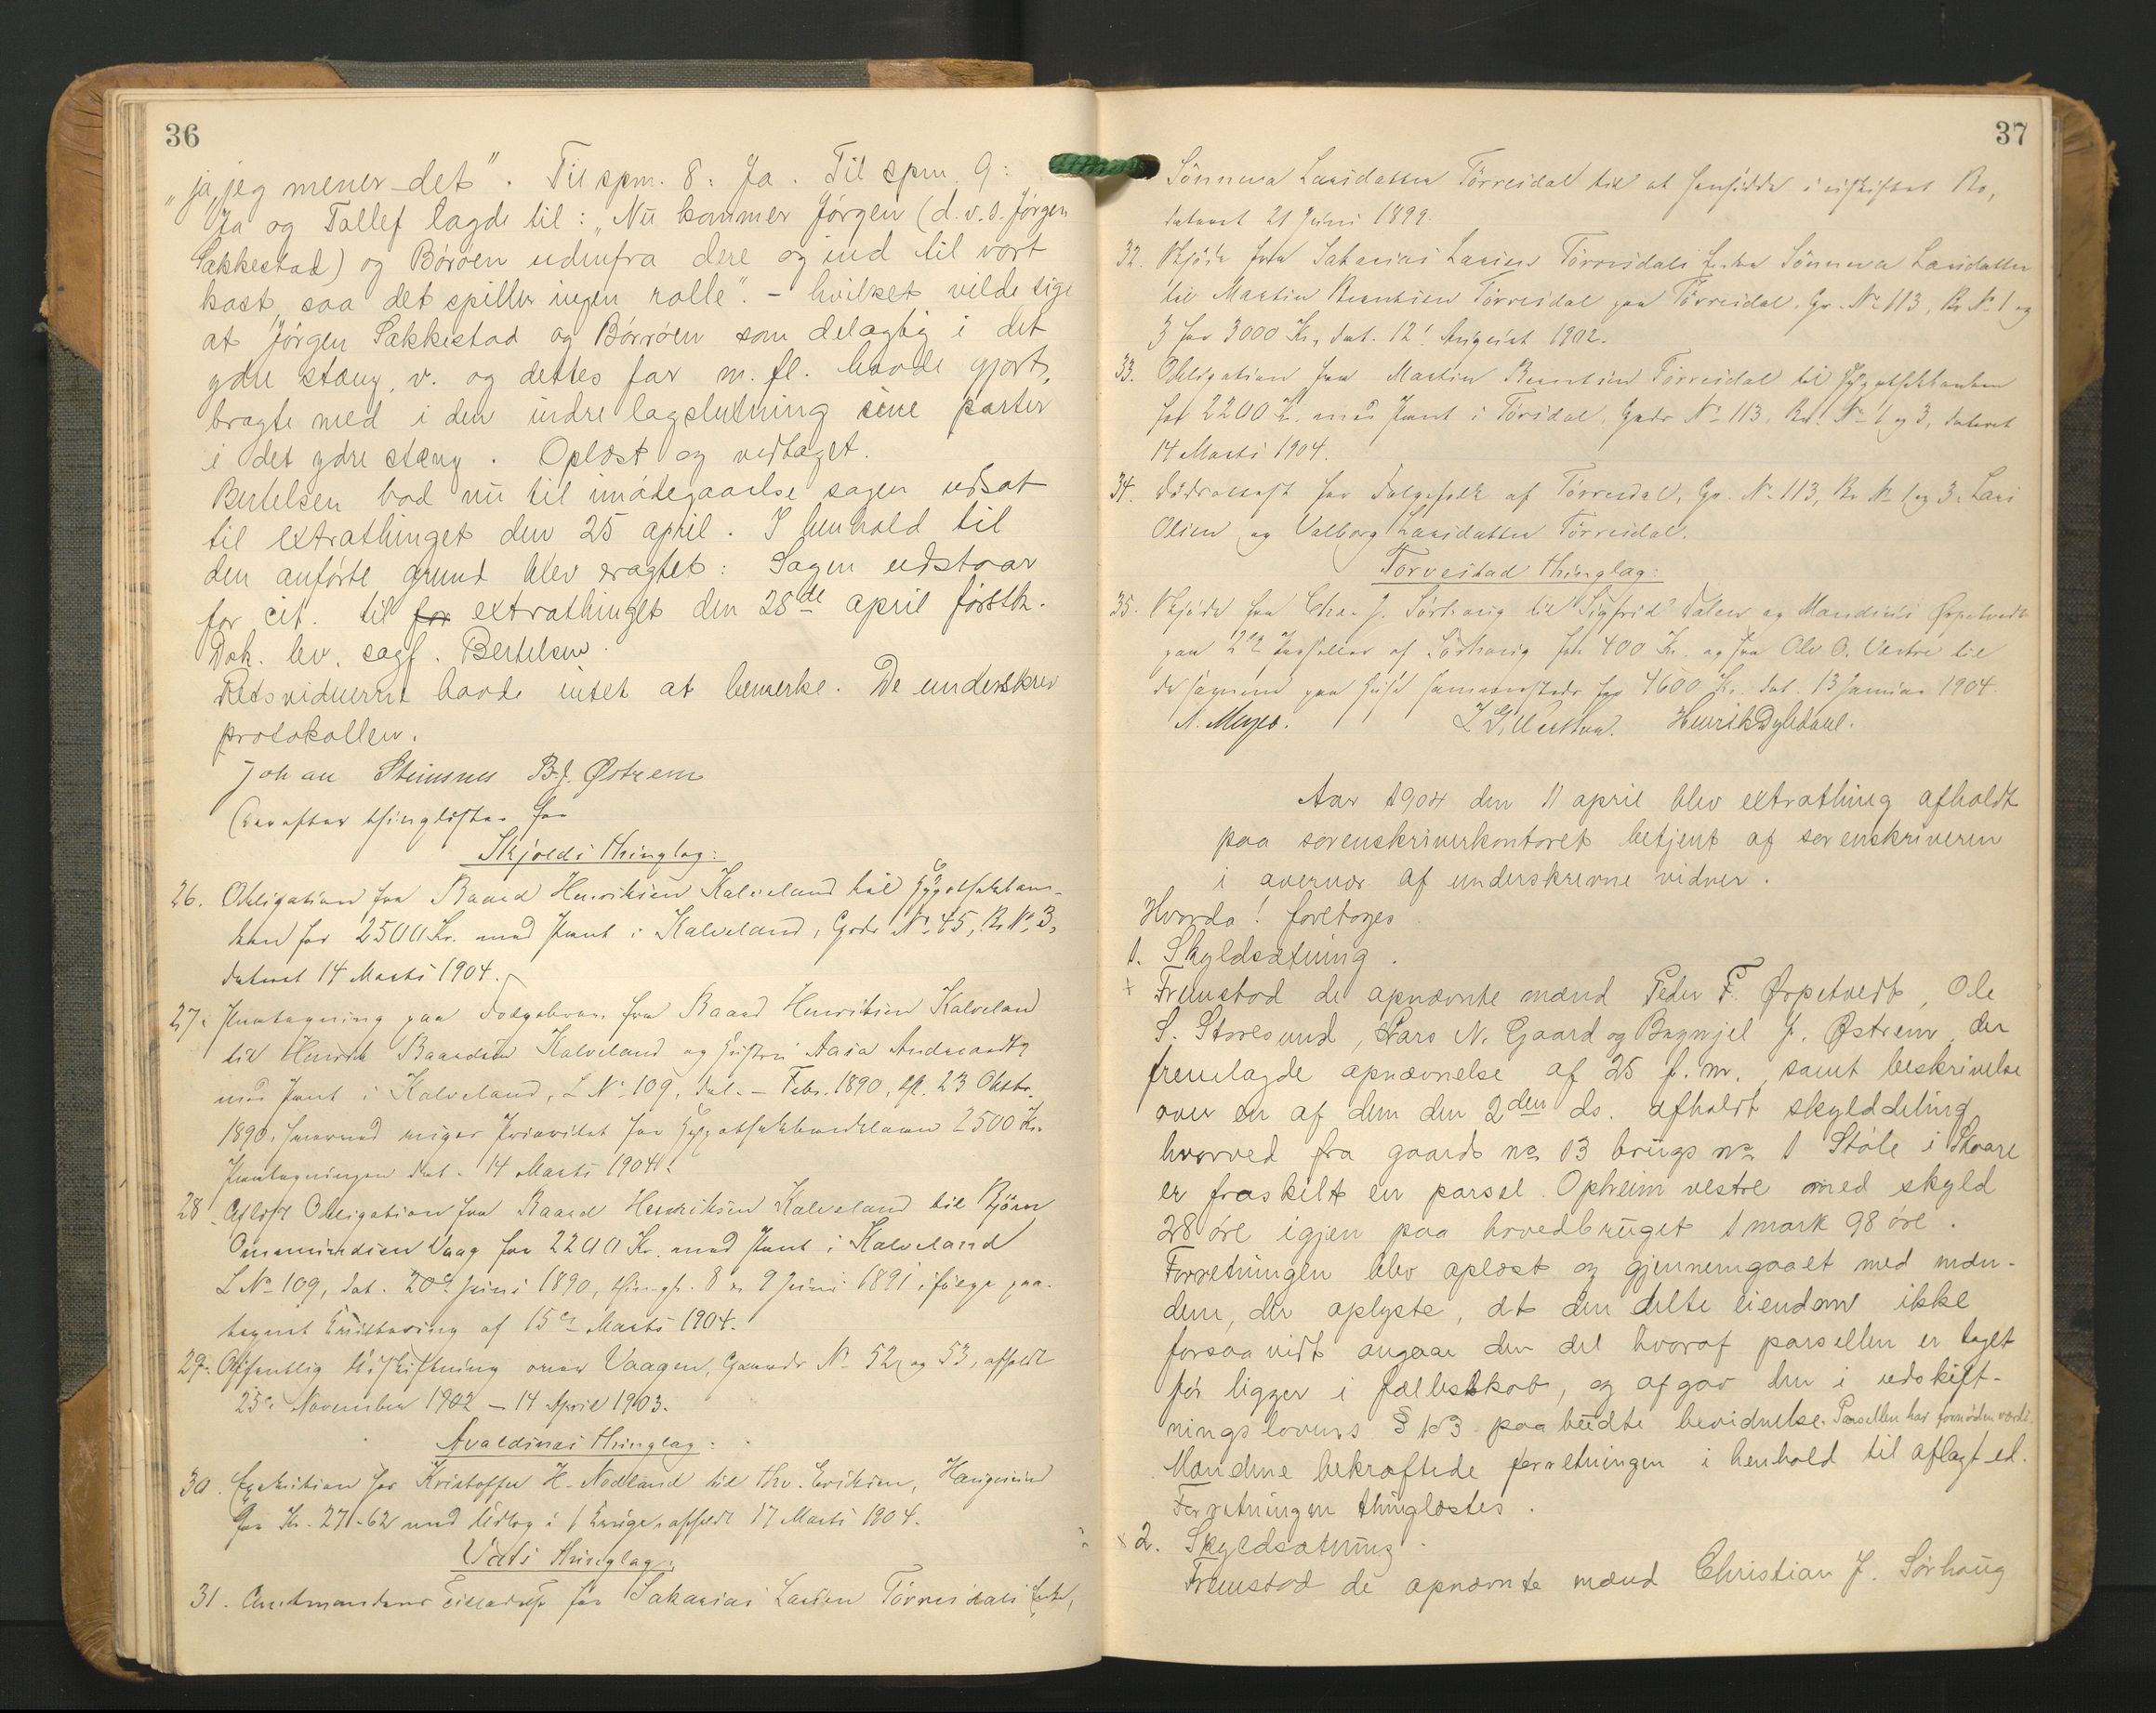 36
"ja, jeg mener det". Til spm. 8: Ja. Til spm. 9:
Ja og Tallef lagde til: "Nu kommer Jørgen (d.v.s. Jørgen
Sakkestad) og Børøen udenfra dere og ind til vort
kast, saa det spiller ingen rolle". - hvilket vilde sige
at Jørgen Sakkestad og Børrøen som delagtig i det
ydre stæng, v. og dettes far m. fl. havde gjort,
bragte med i den indre lagslutning sine parter
i det ydre stæng. Oplæst og vedtaget.
Bertelsen bad nu til imødegaaelse sagen udsat
til extrathinget den 25 april. I henhold til
den anførte grund blev eragtet: Sagen udstaar
for cit. til for extrathinget den 25de april førstk.
Dok. lev. sagf. Bertelsen.
Retsvidnerne havde intet at bemerke. De underskrev
protokollen.
Johan Steinsnes B. J. Østrem
Derefter thinglæstes for
Skjolds Thinglag:
26. Obligation fra Baard Henriksen Kalveland til Hypothekban-
ken for 2500 Kr. med Pant i Kalveland, Grds No 45, B. No 3,
dateret 14 Marts 1904.
27. Paategning paa Føgebrev fra Baard Henriksen Kalveland
til Henrik Baardsen Kalveland og Hustru Aasa Andersdtr
med Pant i Kalveland, L No 109, dat. - Febr. 1890, gl. 23 Oktbr.
1890, hvorved viges Prioritet for Hypothekbanklaan 2500 Kr.
Paategningen dat. 14 Marts 1904.
28. Aflyst Obligation fra Baard Henriksen Kalveland til Bjørn
Ommundsen Vaag for 2200 Kr. med Pant i Kalveland
L No 109, dat. 20de Juni 1890, thingl. 8 & 9 Juni 1891 ifølge paa-
tegnet Kvittering af 15de Marts 1904.
29. Offentlig Udskiftning over Vaagen, Gaards No 52 og 53, afholdt
25de November 1902 - 14 April 1903.
Avaldsnæs Thinglag:
30. Exekution for Kristoffer H. Nodland hid Thv. Eriksen, Haugesund
for Kr. 271-62 med Udlæg i afholdt 17 Marts 1904.
Vats Thinglag:
31. Amtmandens Tilladelse for Sakarias Larsen Tørresdals Enke,
37
Sønneva Larsdatter Tørresdal til at hensidde i uskiftet Bo,
dateret 21 Juni 1899.
32. Skjøde fra Sakarias Larsen Tørresdals Enke Sønneva Larsdatter
til Martin Berntsen Tørresdal paa Tørresdal, Gr. No 113, Br. No 1 og
3 for 3000 Kr., dat. 12 August 1902.
33. Obligation fra Martin Berntsen Tørresdal til Hypothekbanken
for 2200 Kr. med Pant i Tørsdal, Gards No 113, Br. No 1 og 3, dateret
14 Marts 1904.
34. Dødsattest for Følgefolk af Tørresdal, Gr. No 113, Br. No 1 og 3: Lars
Olsen og Valborg Larsdatter Tørresdal.
Torvestad Thinglag:
35. Skjøde fra Chr. J. Sørhaug til Sigfrid Dalen og Mandius Ørpetvedt
paa 2de Parseller af Sørhaug for 400 Kr. og fra Ole O. Vestre til
de samme paa Huse sammesteds for 4600 Kr. dat. 13 Januar 1904.
N. Meyer. Henrik Dybdahl.
Aar 1904 den 11 april blev extrathing afholdt
paa sorenskriverkontoret betjent af sorenskriveren
i overvær af underskrevne vidner.
Hvorda! foretoges
1. Skyldsætning.
Fremstod de opnævnte mænd Peder F. Ørpetvedt, Ole
S. Storesund, Lars N. Gaard og Brynjel J. Østrem, der
fremlagde opnævnelse af 25 f. m., samt beskrivelse
over en af dem den 2den ds. afholdt skylddeling
hvorved fra gaards no 13 brugs no 1 Støle i Skaare
er fraskilt en parsel. Opheim vestre med skyld
28 øre igjen paa hovedbruget 1 mark 98 øre.
Forretningen blev oplæst og gjennemgaaet med mæn-
dene, der oplyste, at den delte eiendom ikke
forsaavidt angaar den del hvoraf parsellen er taget
før ligger i fællesskab, og afgav den i udskift-
ningslovens § 103 paabudte bevidnelse. Parsellen har fornøden
Mændene bekræftede forretningen i henhold til aflagt ed.
Forretningen thinglæstes.
2. Skyldsætning.
Fremstod de opnævnte mænd Christian J. Sørhaug